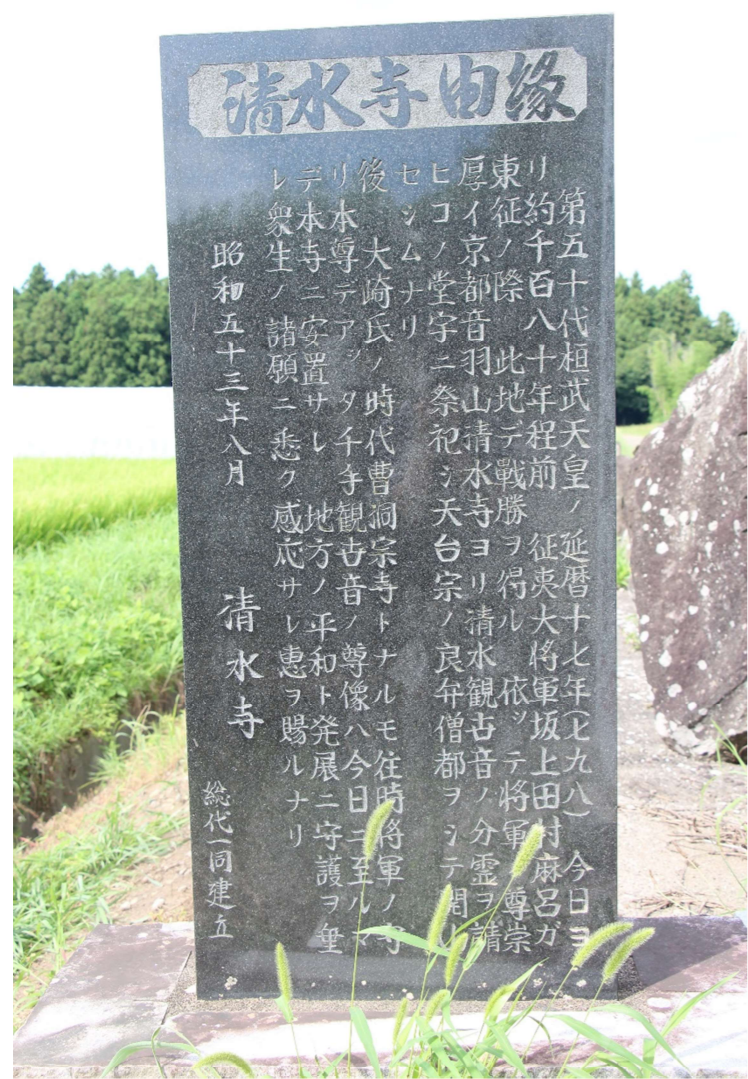 清水寺由縁
第五十代桓武天皇ノ延暦十七年(七九八)今日ヨ
リ約千百八十年程前 征夷大将軍坂上田村麻呂ガ
東征ノ際 此地デ戰勝ヲ得ル 依ッテ将軍ノ尊崇
厚イ京都音羽山清水寺ヨリ清水観世音ノ分霊ヲ請
ヒコノ堂宇ニ祭祀シ天台宗ノ良弁僧都ヲシテ開
セシムナリ
後 大崎氏ノ時代曹洞宗寺トナルモ往時将軍ノ守
リ本尊デアッタ千手観世音ノ尊像ハ今日ニ至ルマ
デ本寺ニ安置サレ 地方ノ平和ト発展ニ守護ヲ垂
レ衆生ノ諸願ニ悉ク感応サレ惠ヲ賜ルナリ
昭和五十三年八月 清水寺 総代一同建立